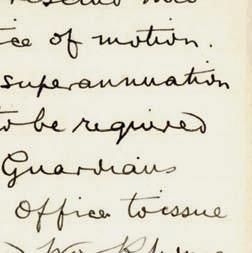 ice of motion.
superannuation
to be required
Guardians
Office to issue